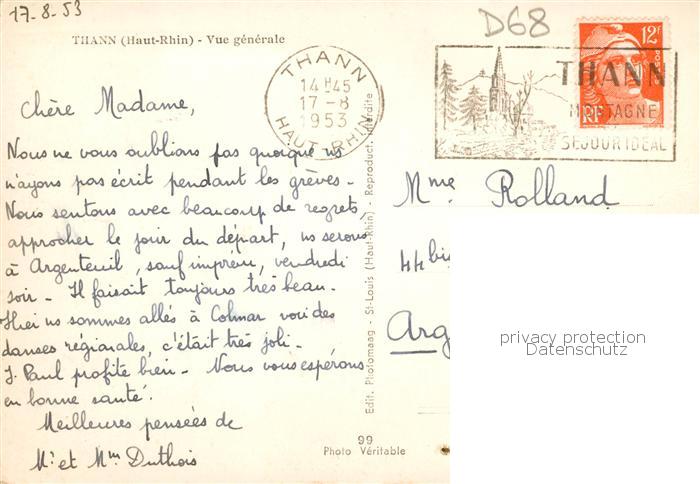 17-8-53
D68
THANN (Haut-Rhin) - Vue générale
THANN
14H45
17-8
1953
HAUT-RHIN
12F
RF
THANN
MONTAGNE
SEJOUR IDEAL
Chère Madame,
Nous ne vous oublions pas quoique ns
n'ayons pas écrit pendant les grèves -
Nous sentons avec beaucoup de regrets,
approcher le jour du départ, ns serons
à Argenteuil, sauf imprévu, vendredi
soir - Il faisait toujours très beau -
Hier ns sommes allés à Colmar voir des
danses régionales, c'était très joli -
J. Paul profite bien - Nous vous espérons
en bonne santé.
Meilleures pensées de
Mr et Mm Duthois
Mme Rolland
44 bis
Arg
Edit. Photomaag - St-Louis (Haut-Rhin) - Reproduct. interdite
99
Photo Véritable
privacy protection
Datenschutz